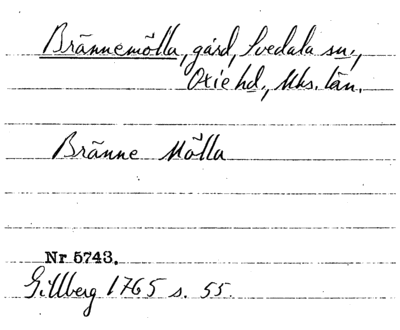 Brännemölla, gård, Svedala sn.,
Oxie hd., Mhs. län.
Bränne Mölla
Nr 5743.
Gillberg 1765 s. 55.